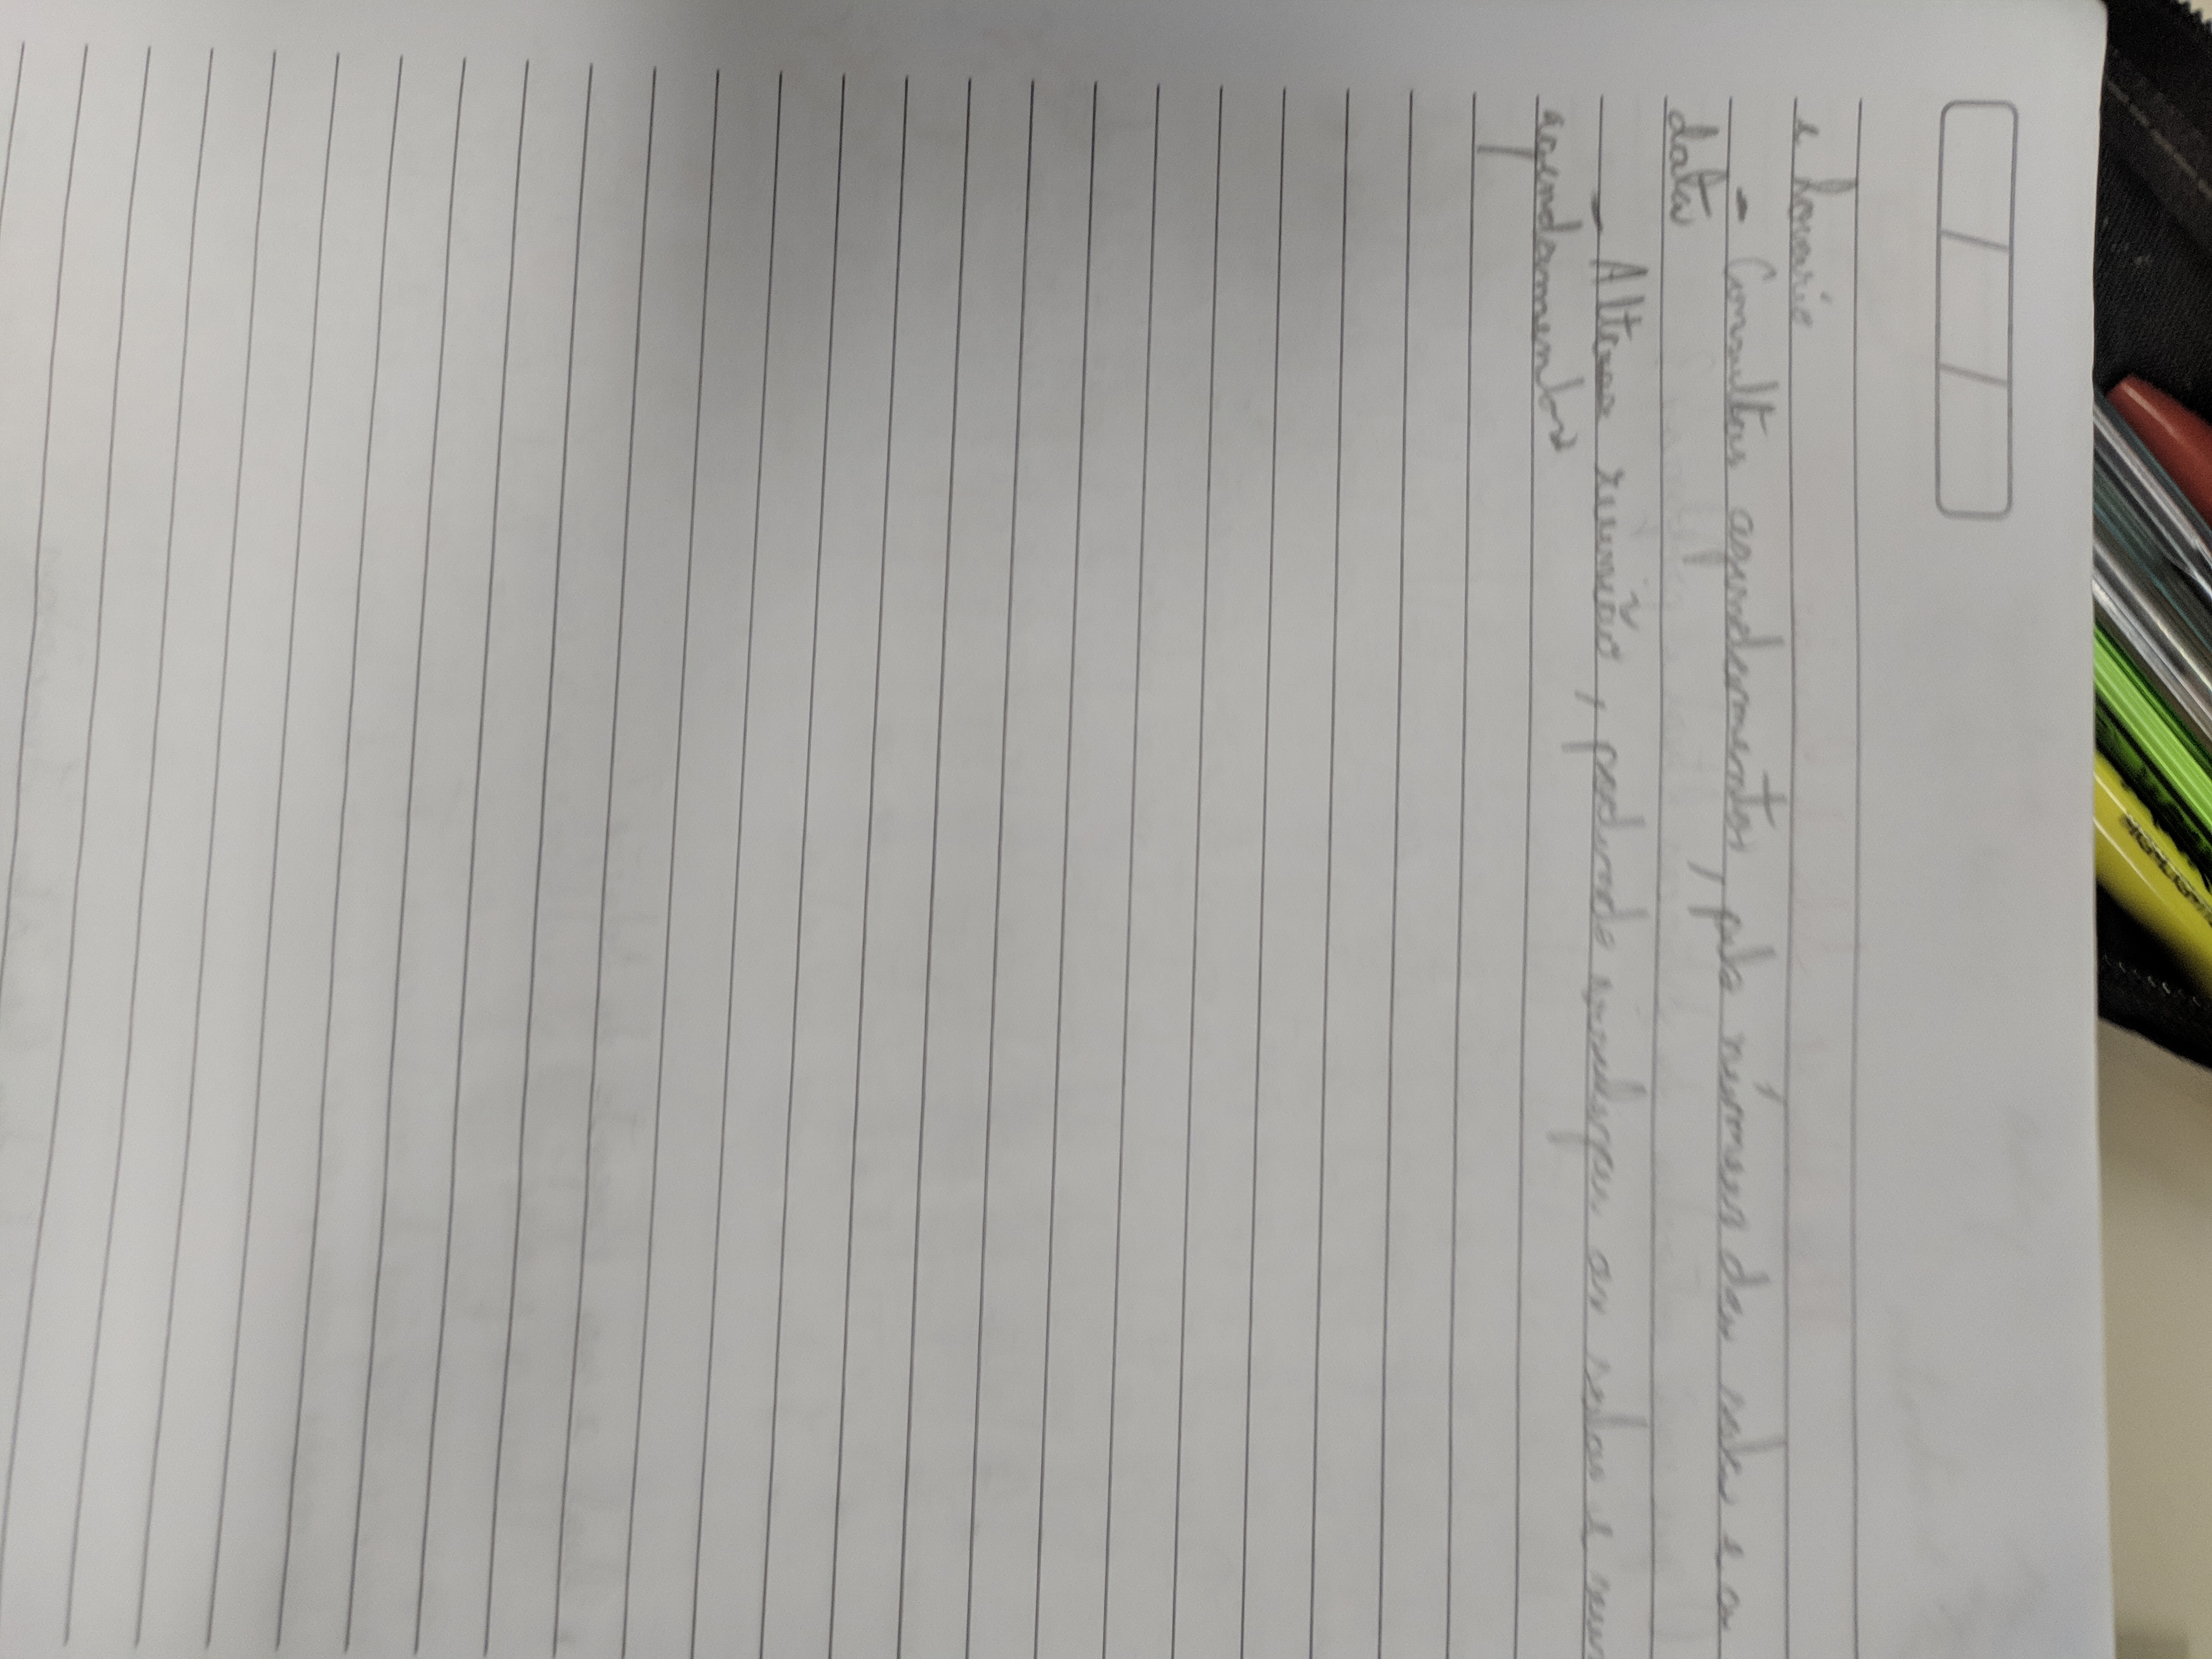 e horário
- Consultar agendamentos, pelo número da sala e a
data
- Alterar reunião, podendo mudar as salas e seu
agendamento